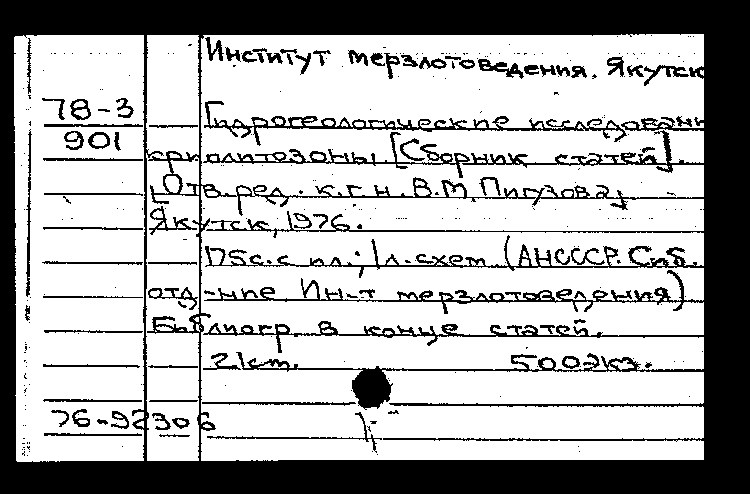 Институт мерзлотоведения. Якутск
78-3 Гидрогеологические исследован
901 криолитозоны. [Сборник статей].
[Отв. ред. к.г.н. В.М. Пигузова]
Якутск, 1976.
175с. с ил.; 1 л. схем (АНСССР. Сиб.
отд-ние. Ин-т мерзлотоведения)
Библиогр. в конце статей.
21см. 500экз.
76-92306